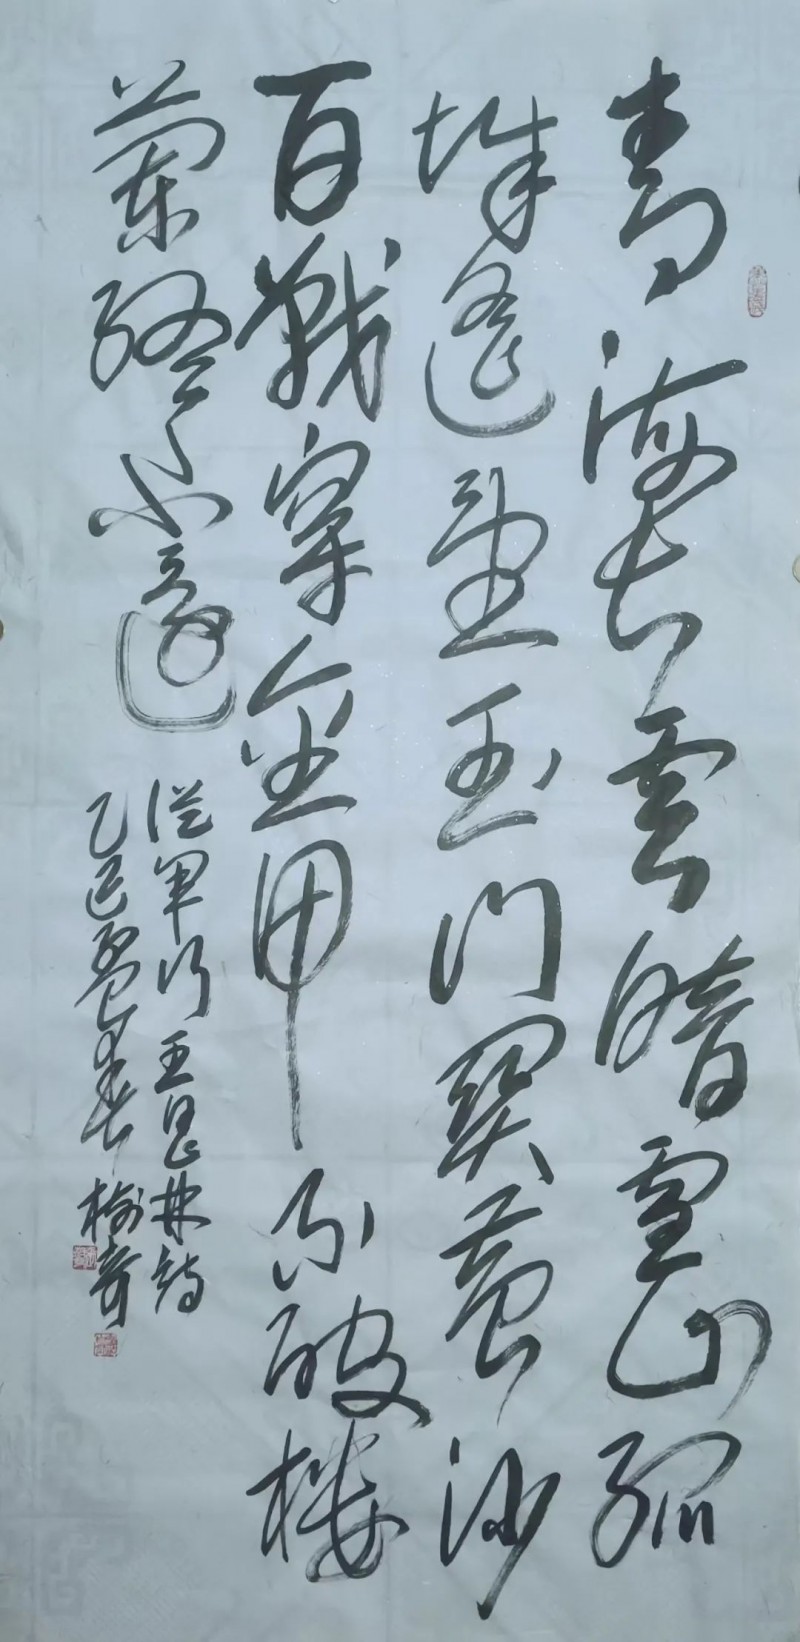 青海长云暗雪山孤
城遥望玉门关黄沙
百战穿金甲不破楼
兰终不还
从军行王昌龄诗
乙巳孟春